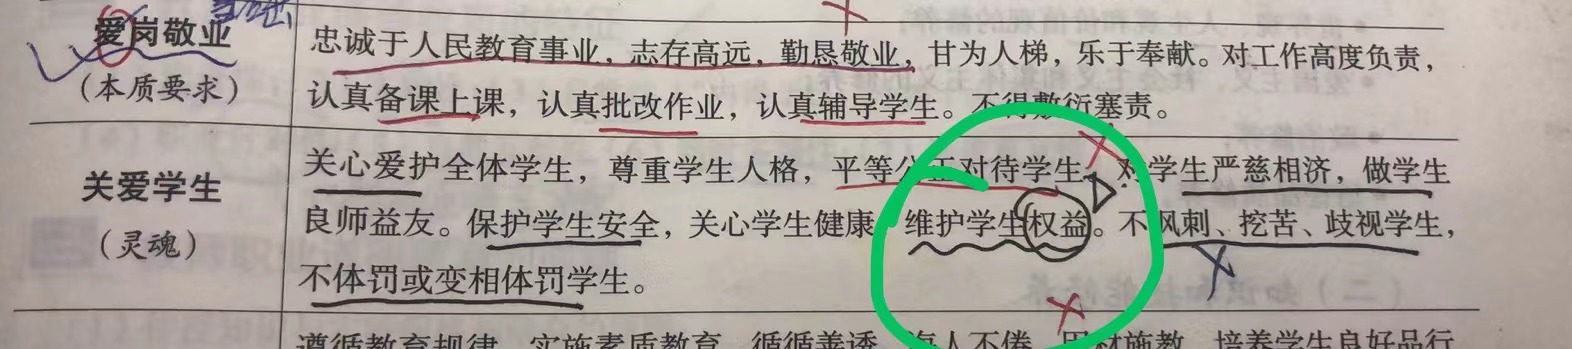 爱岗敬业
(本质要求)
忠诚于人民教育事业，志存高远，勤恳敬业，甘为人梯，乐于奉献。对工作高度负责，
认真备课上课，认真批改作业，认真辅导学生。不得敷衍塞责。
关爱学生
(灵魂)
关心爱护全体学生，尊重学生人格，平等公正对待学生。对学生严慈相济，做学生
良师益友。保护学生安全，关心学生健康，维护学生权益。不讽刺、挖苦、歧视学生，
不体罚或变相体罚学生。
遵循教育规律，实施素质教育。循循善诱，诲人不倦，因材施教。培养学生良好品行